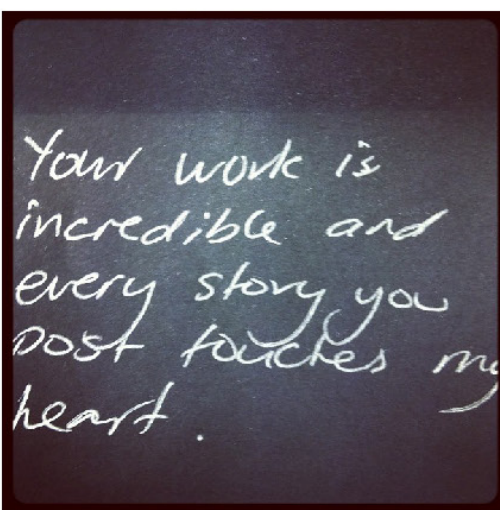 Your work is
incredible and
every story you
post touches my
heart.